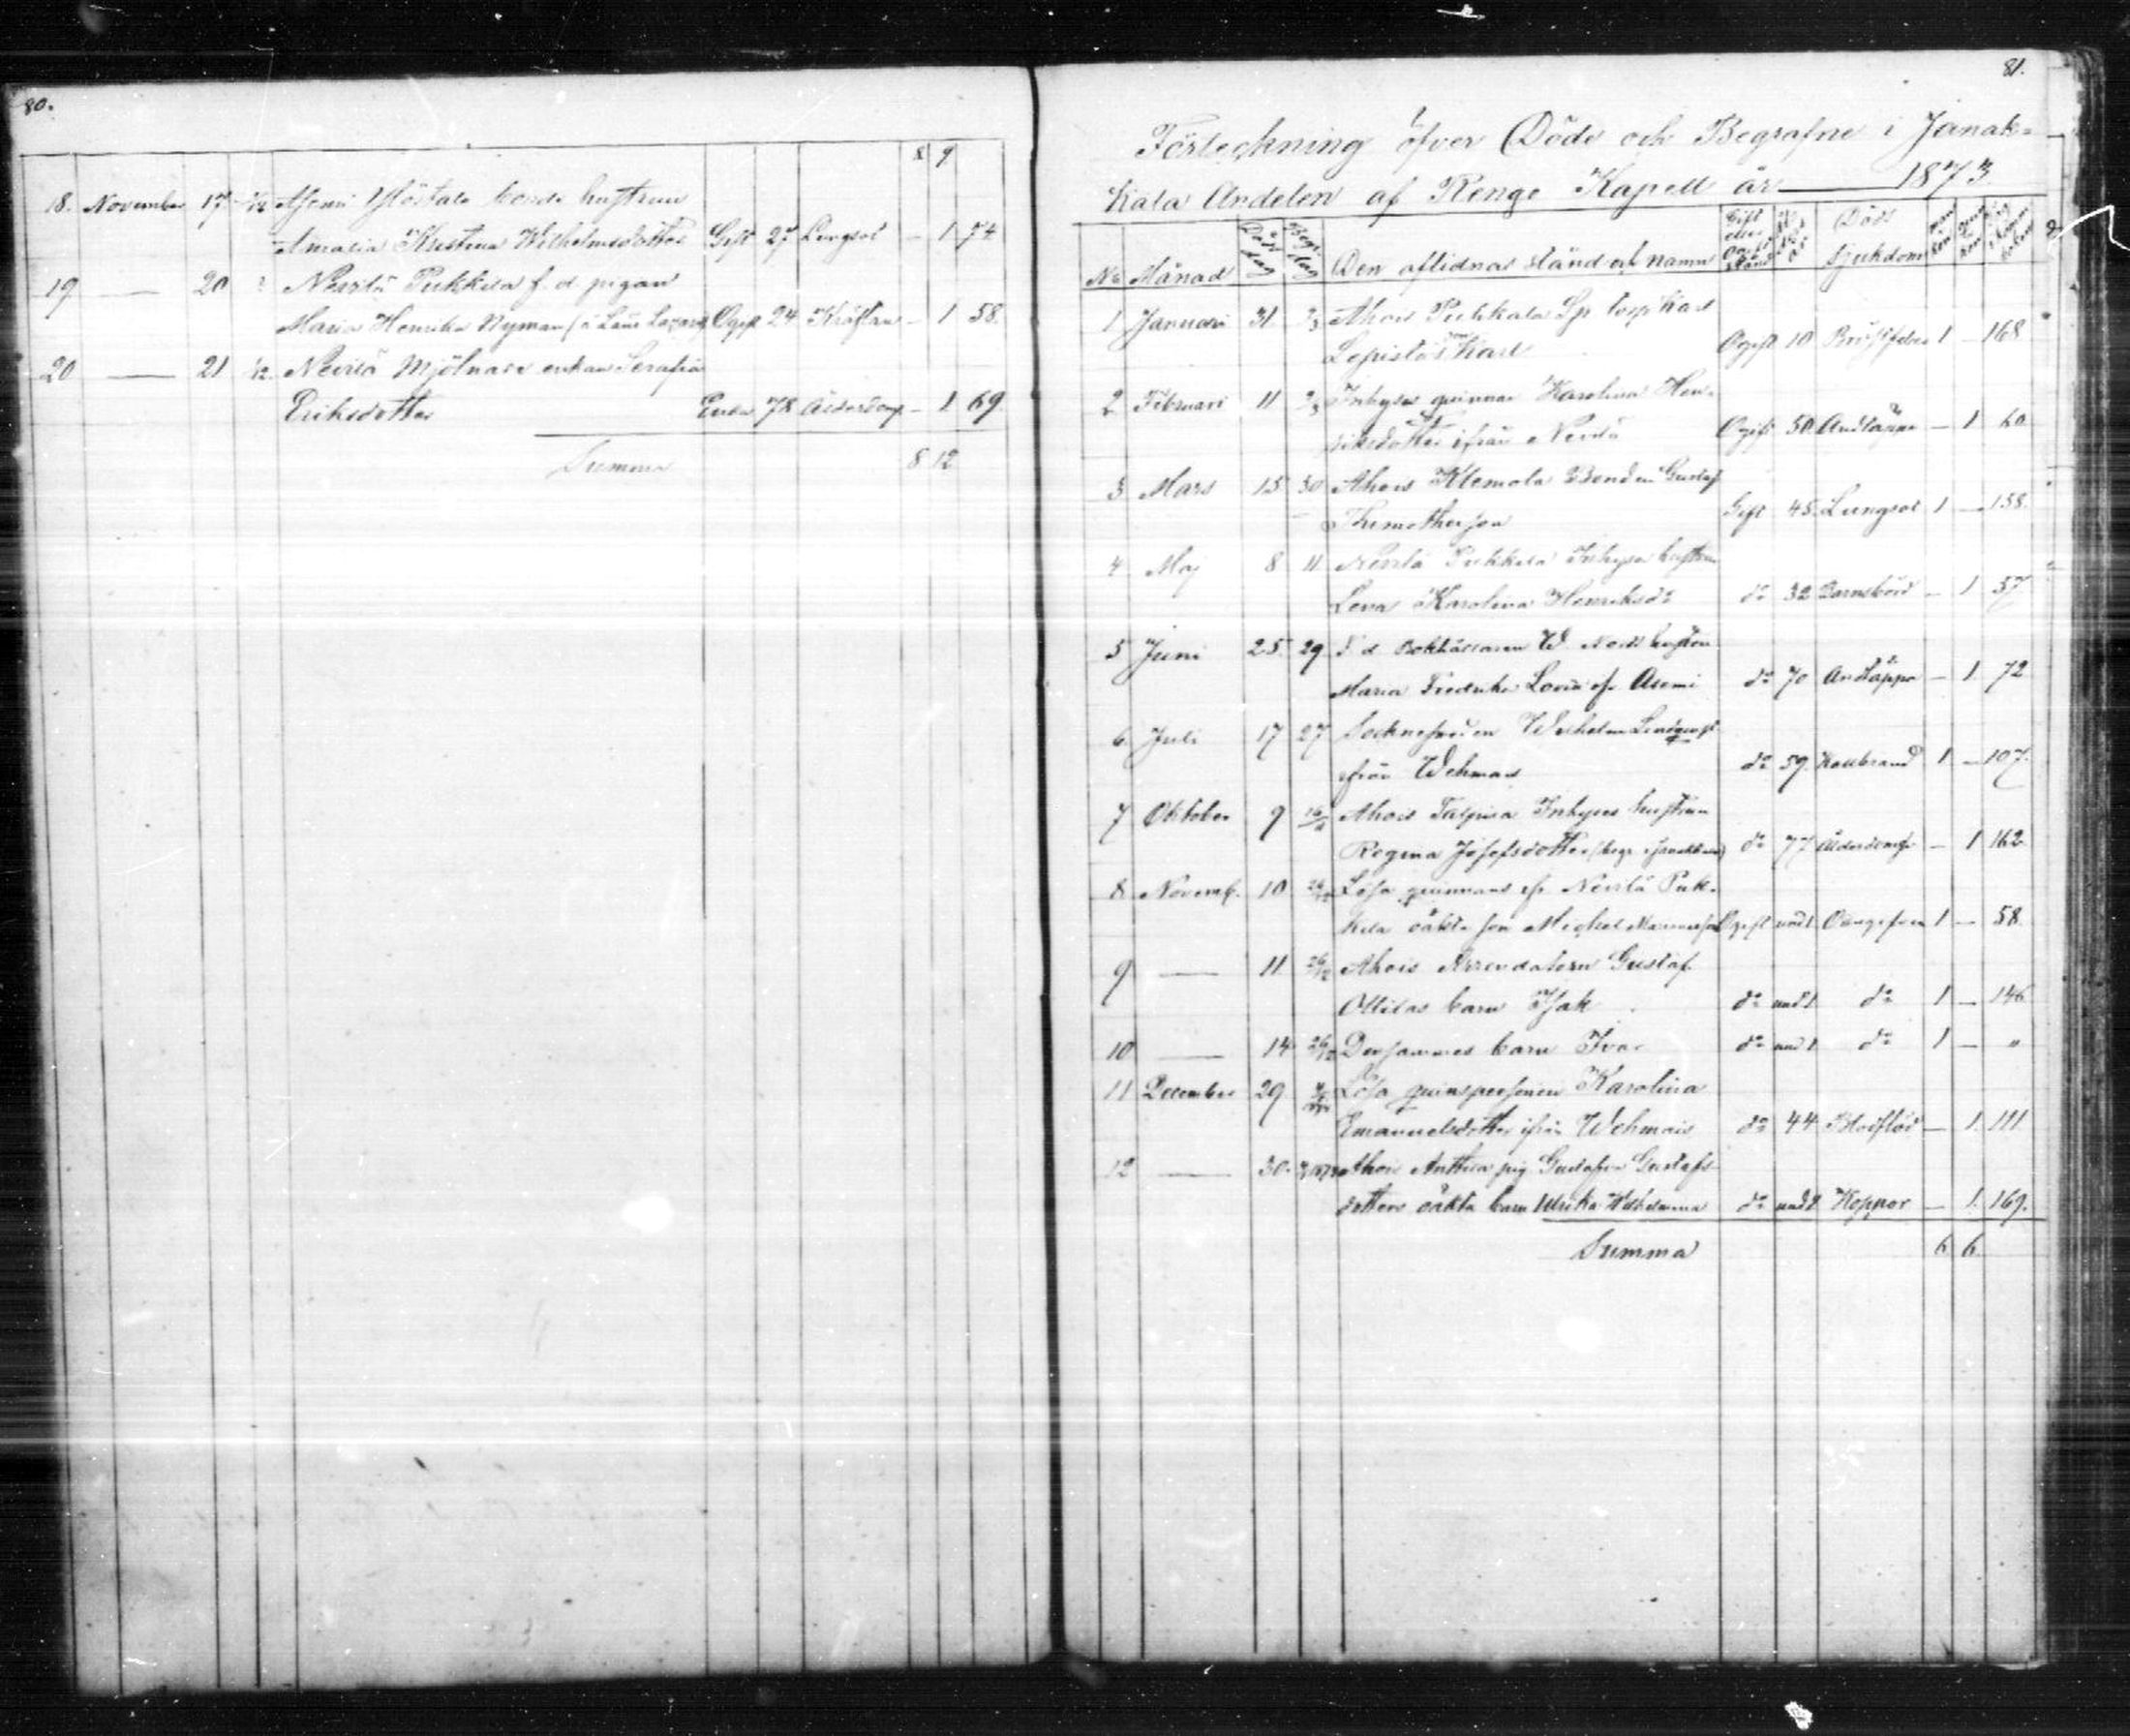 80.
8 9
18. November 17 1/12 Asemi Yöstala bonde hustrun
Amalia Kristina Wilhelmsdotter Gift 27 Lungsot – 1 74
19 — 20 Nevilä Pukkila f. d. pigan
Maria Henrika Nyman Ogift 24 Kräftan – 1 58.
20 — 21 1/12. Nevilä Mjölnare enkan Serafia
Eriksdotter Enka 78 Ålderdom – 1 69.
Summa 8 12
81.
Förteckning öfver Döde och Begrafne i Janak=
kala Andelen af Renge Kapell år — 1873.
No Månad Döds dag Begr. dag Den aflidnas stånd och namn Gift eller Ogift stånd Döds sjukdom
1 Januari 31 2/3 Ahois Puhkala Sp torp Karl
Lepistös son Karl Ogift 10 Bröstfeber 1 – 168
2 Februari 11 2/3 Inhyses qvinnan Karolina Hen-
riksdotter ifrån Nevilä Ogift 50. Andtäppa – 1 60
3 Mars 15 30 Ahois Klemola Bonden Gustaf
Thimotheson Gift 45. Lungsot 1 – 158.
4 Maj 8 11 Nevilä Pukkila Inhyses hustrun
Lena Karolina Henriksdr do 32 Barnsbörd – 1 57
5 Juni 25. 29. F d Bokhållaren W. hustrun
Maria Fredrika Lovisa fr Asemi do 70 Andtäppa – 1. 72
6. Juli 17 27 Sockne Wilhelm Lindqvist
ifrån Wehmais do 59. Kallbrand 1. – 107.
7 Oktober 9 16/11 Ahois Inhyses hustrun
Regina Josefsdotter do 77 Ålderdom – 1 162
8 Novemb. 10 26/12 Lösa qvinnans fr Nevilä Puk-
kila oäkta son Michel Ogift und 1 1 – 58.
9 — 11 26/12 Ahois Arrendatorn Gustaf
Ollilas barn Isak do und 1 do 1 – 146
10 — 14 26/12 Densammes barn Ivar do und 1 do 1 – "
11 December 29 Lösa qvinspersonen Karolina
Emanuelsdotter ifrån Wehmais do 44 Blodflöd – 1. 111
12 — 30. Ahois Anttila pig. Gustafva Gustafs-
dotters oäkta barn Ulrika Wilhelmina do und 1 Koppor – 1. 169.
Summa 6 6